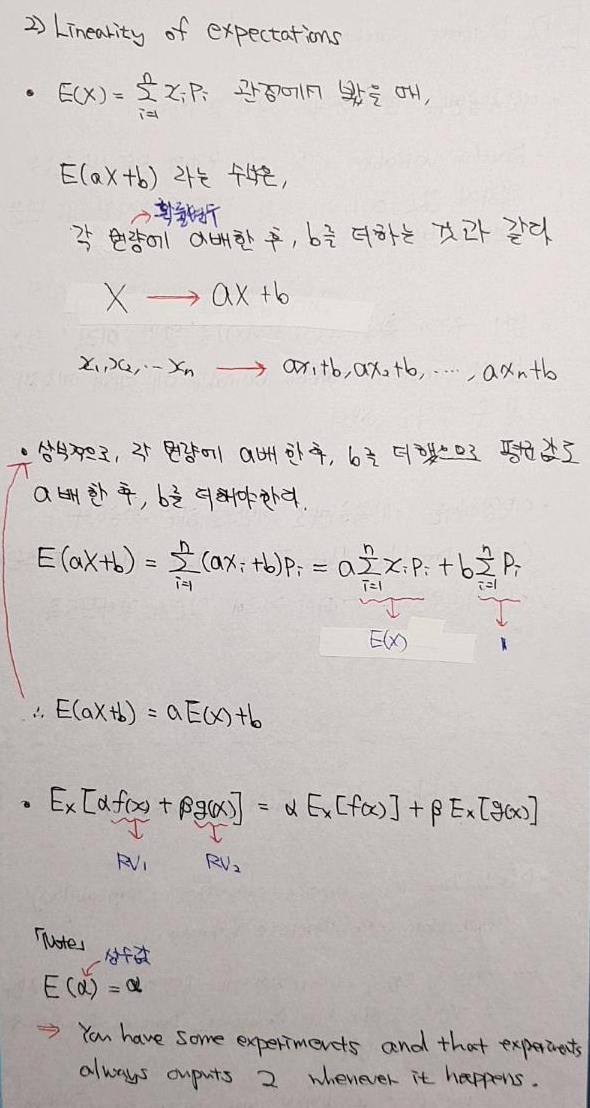 2) Linearity of expectations
• E(X) = Σ_{i=1}^{n} x_i p_i 관점에서 봤을 때,
E(aX+b) 라는 수식은,
→ 확률변수
각 변량에 a배한 후, b를 더하는 것과 같다
X → aX+b
x₁, x₂, ⋯ xₙ → ax₁+b, ax₂+b, ⋯⋯, axₙ+b
• 상식적으로, 각 변량에 a배 한 후, b를 더했으므로 평균값도
a배 한 후, b를 더해야한다.
E(aX+b) = Σ_{i=1}^{n} (ax_i+b)p_i = a Σ_{i=1}^{n} x_i p_i + b Σ_{i=1}^{n} p_i
E(X) 1
∴ E(aX+b) = aE(X)+b
• E_x[αf(x) + βg(x)] = α E_x[f(x)] + β E_x[g(x)]
RV₁ RV₂
「Note」
상수값
E(α) = α
⇒ You have some experiments and that experiments
always outputs 2 whenever it happens.